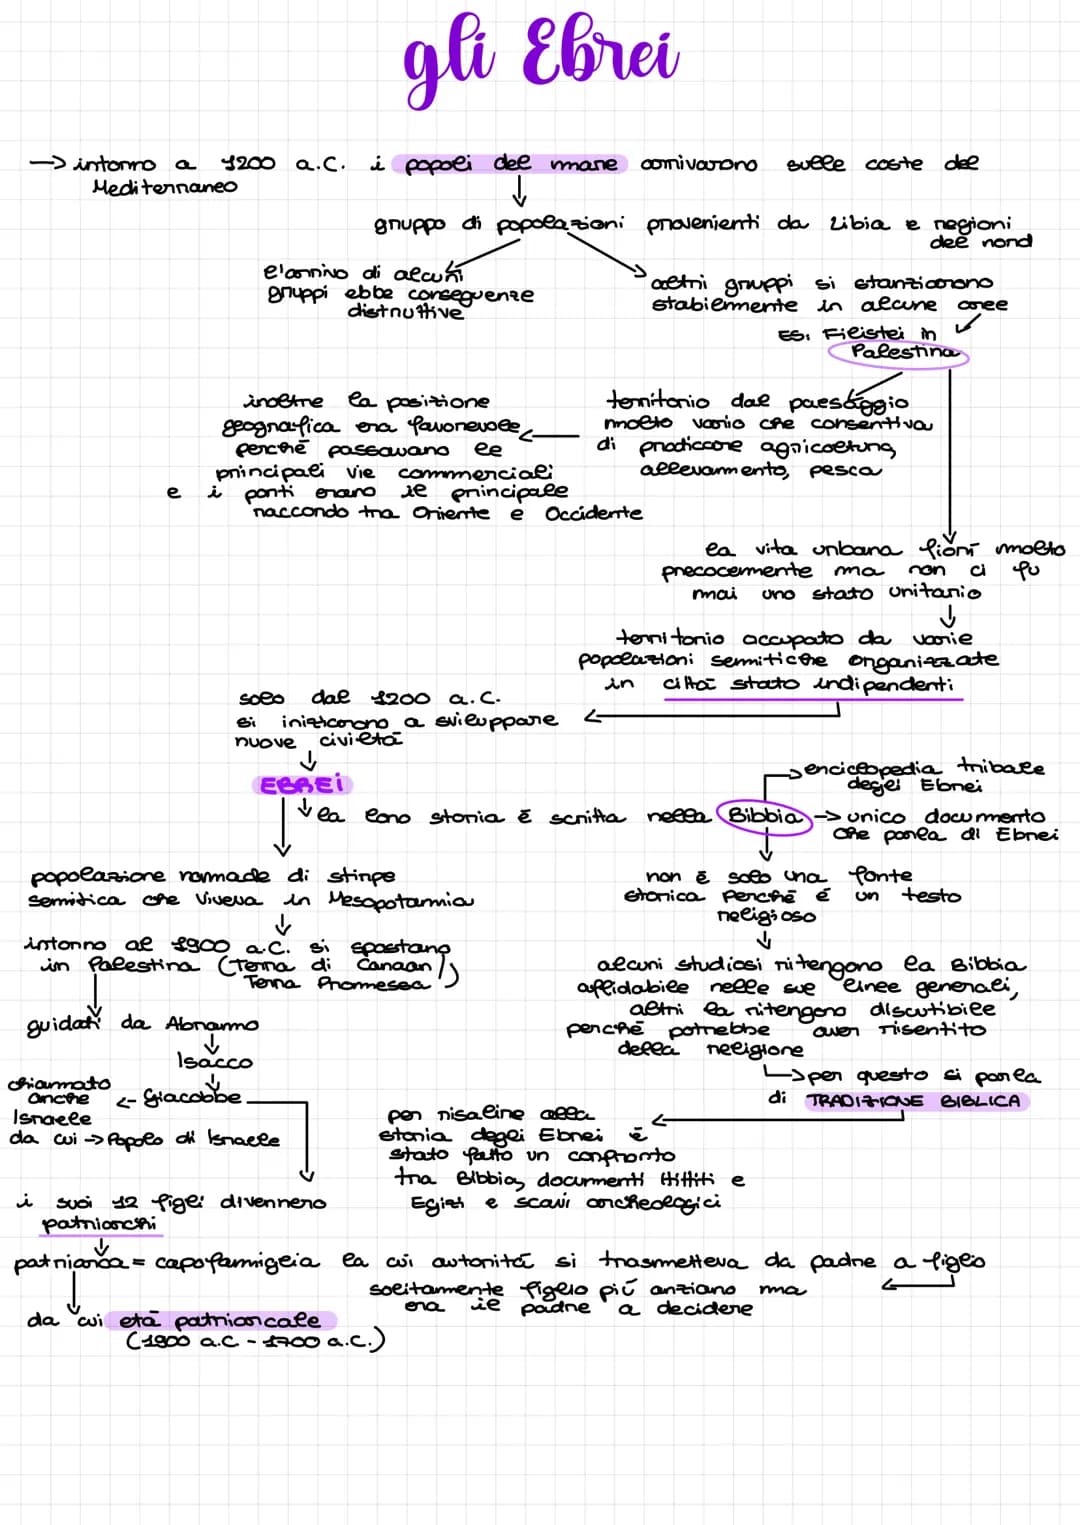 gli Ebrei
→ intorno a 1200 a.C. i popoli del mare arrivarono sulle coste del
Mediterraneo
gruppo di popolazioni provenienti da Libia e regioni
del nord
l'arrivo di alcuni
gruppi ebbe conseguenze
distruttive
altri gruppi si stanziarono
stabilmente in alcune aree
ES: Filistei in
Palestina
territorio dal paesaggio
molto vario che consentiva
di praticare agricoltura,
allevamento, pesca
inoltre la posizione
geografica era favorevole
perché passavano le
principali vie commerciali
e i porti erano il principale
raccordo tra Oriente e Occidente
la vita urbana fiorì molto
precocemente ma non ci fu
mai uno stato unitario
territorio occupato da varie
popolazioni semitiche organizzate
in città stato indipendenti
solo dal 1200 a.C.
si iniziarono a sviluppare
nuove civiltà
EBREI
la loro storia è scritta nella Bibbia → unico documento
che parla di Ebrei
enciclopedia tribale
degli Ebrei
popolazione nomade di stirpe
semitica che viveva in Mesopotamia
intorno al 1900 a.C. si spostano
in Palestina (Terra di Canaan /
Terra Promessa)
guidati da Abramo
Isacco
Giacobbe
chiamato
anche
Israele
da cui → Popolo di Israele
i suoi 12 figli divennero
patriarchi
non è solo una fonte
storica perché è un testo
religioso
alcuni studiosi ritengono la Bibbia
affidabile nelle sue linee generali,
altri la ritengono discutibile
perché potrebbe aver risentito
della religione
per questo si parla
di TRADIZIONE BIBLICA
per risalire alla
storia degli Ebrei è
stato fatto un confronto
tra Bibbia, documenti Hittiti e
Egizi e scavi archeologici
patriarca = capofamiglia la cui autorità si trasmetteva da padre a figlio
solitamente figlio più anziano ma
era il padre a decidere
da cui età patriarcale
(1900 a.C - 1700 a.C.)